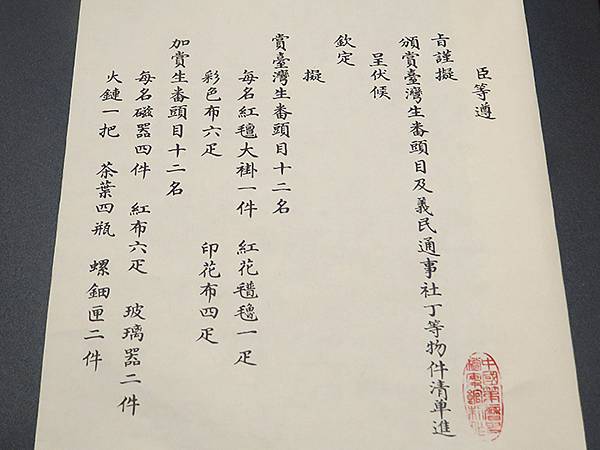 臣等遵
旨謹擬
頒賞臺灣生番頭目及義民通事社丁等物件清单進
呈伏候
欽定
擬
賞臺灣生番頭目十二名
每名紅氆大褂一件 紅花氆氌一疋
彩色布六疋 印花布四疋
加賞生番頭目十二名
每名磁器四件 紅布六疋 玻璃器二件
火鏈一把 茶葉四瓶 螺鈿匣二件